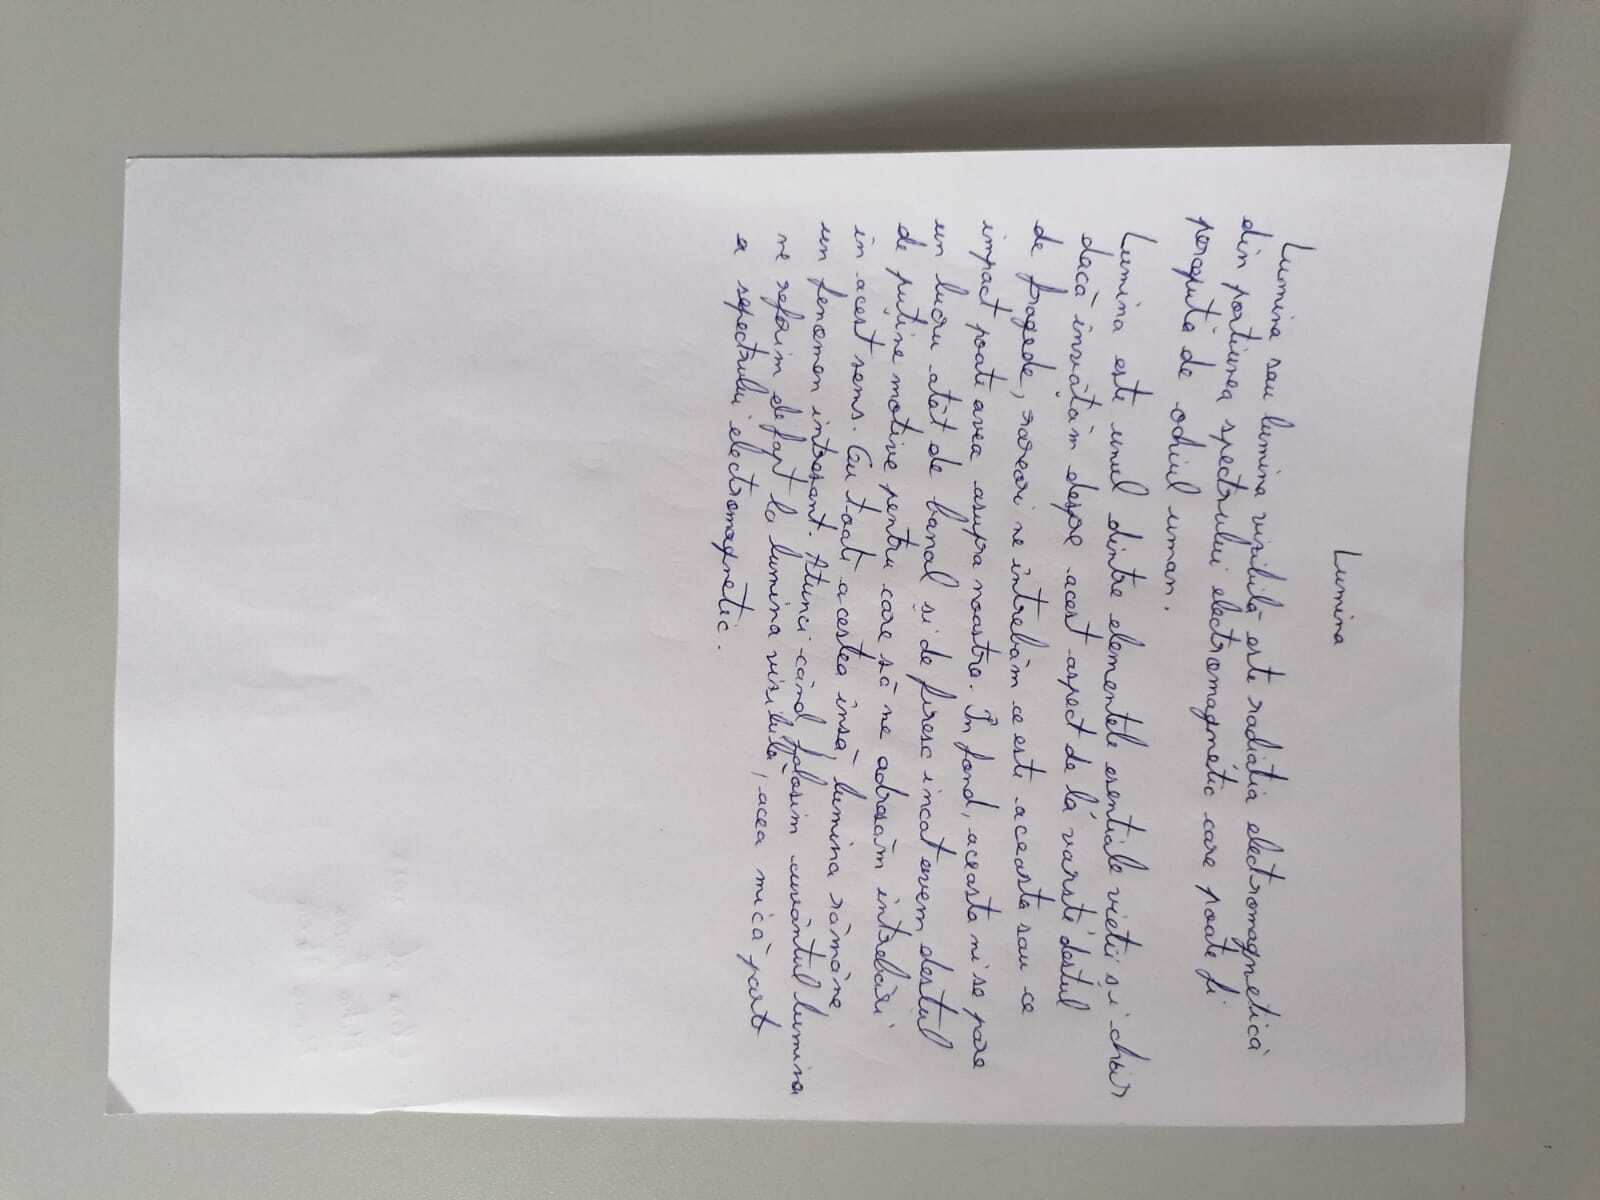 Lumina
Lumina sau lumina vizibilă este radiația electromagnetică
din porțiunea spectrului electromagnetic care poate fi
percepută de odiul uman.
Lumina este unul dintre elementele esentiale vietii și chiar
dacă învățăm despre acest aspect de la varste destul
de fragede, rareori ne întrebăm ce este aceasta sau ce
impact poate avea asupra noastra. În fond, aceasta ni se pare
un lucru atât de banal și de firesc incat avem destul
de puține motive pentru care să ne adresăm întrebări
în acest sens. Cu toate acestea însă, lumina rămâne
un fenomen interesant. Atunci când folosim cuvântul lumina
ne referim de fapt la lumina vizibilă, acea mică parte
a sepectrului electromagnetic.